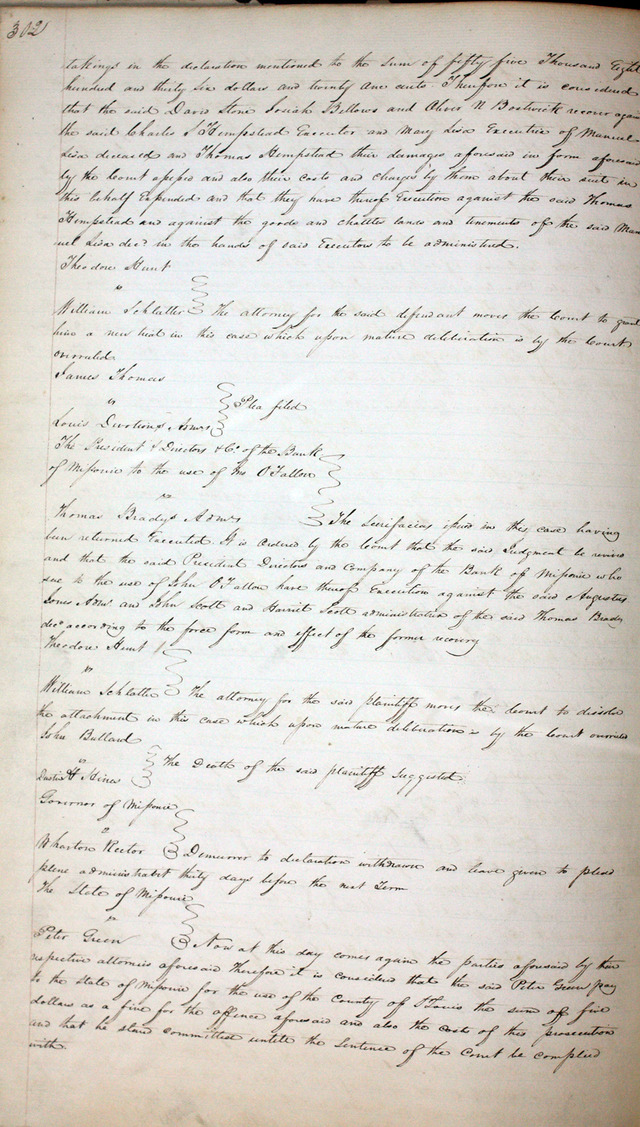 302
takings in the declaration mentioned to the sum of fifty five Thousand Eight
hundred and thirty six dollars and twenty one cents. Therefore it is considered
that the said David Stone Josiah Bellows and Oliver N Bostwick recover again
the said Charles S Hempstead Executor and Mary Lisa Executrix of Manuel
Lisa deceased and Thomas Hempstead their damages aforesaid in form aforesaid
by the Court assess and also their costs and charges by them about their suit in
this behalf Expended and that they have thereof Execution against the said Thomas
Hempstead and against the goods and chattles lands and tenements of the said Man
uel Lisa decd in the hands of said Executors to be administered.
Theodore Hunt
vs
William Schlatter The attorney for the said defendant moves the Court to grant
him a new trial in this case which upon mature deliberation is by the Court
overruled
James Thomas
vs
Louis Admrs Plea filed
The President & Directors & Co of the Bank
of Missouri to the use of Jno O'Fallon
vs
Thomas Bradys Admrs The Scirifacias issued in this case having
been returned Executed It is ordered by the Court that the said Judgment be revived
and that the said President Directors and Company of the Bank of Missouri who
sue to the use of John O'Fallon have thereof Execution against the said Augustus
Jones Admr and John Scott and Harriet Scott administratrix of the said Thomas Brady
decd according to the force form and effect of the former recovery
Theodore Hunt
vs
William Schlatter The attorney for the said plaintiff moves the Court to dissolve
the attachment in this case which upon mature deliberation is by the Court overruled
John Bullard
vs
Hines The Death of the said plaintiff Suggested
Governor of Missouri
vs
Wharton Rector Demurrer to declaration withdrawn and leave given to plead
plene administravit thirty days before the next Term
The State of Missouri
vs
Peter Green Now at this day comes again the parties aforesaid by their
respective attornies aforesaid Therefore it is considered that the said Peter Green pay
to the State of Missouri for the use of the County of St Louis the sum of five
dollars as a fine for the offence aforesaid and also the costs of this prosecution
and that he stand committed untill the Sentence of the Court be complied
with.